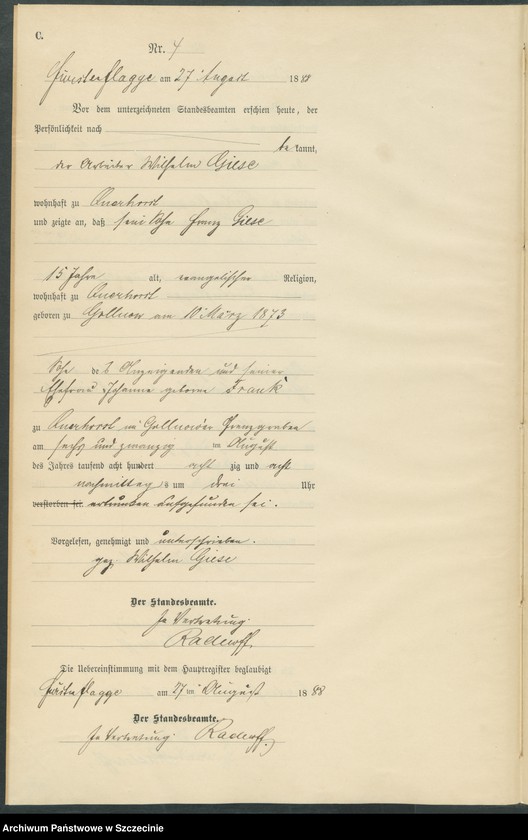 C.
Nr. 4
Fürstenflagge am 27ten August 1888
Vor dem unterzeichneten Standesbeamten erschien heute, der
Persönlichkeit nach
bekannt,
der Arbeiter Wilhelm Giese
wohnhaft zu
und zeigte an, daß sein Sohn Franz Giese
15 Jahre alt, evangelischer Religion,
wohnhaft zu
geboren zu Gollnow am 10ten März 1873
Sohn des Anzeigenden und seiner
Ehefrau Johanne geborne Frank
zu im Gollnower Grenzgraben
am sechs und zwanzig ten August
des Jahres tausend acht hundert acht zig und acht
nachmittags um drei Uhr
verstorben sei. ertrunken aufgefunden sei.
Vorgelesen, genehmigt und unterschrieben.
gez. Wilhelm Giese
Der Standesbeamte.
In Vertretung.
Die Uebereinstimmung mit dem Hauptregister beglaubigt
Fürstenflagge am 27ten August 1888
Der Standesbeamte.
In Vertretung.
Archiwum Państwowe w Szczecinie